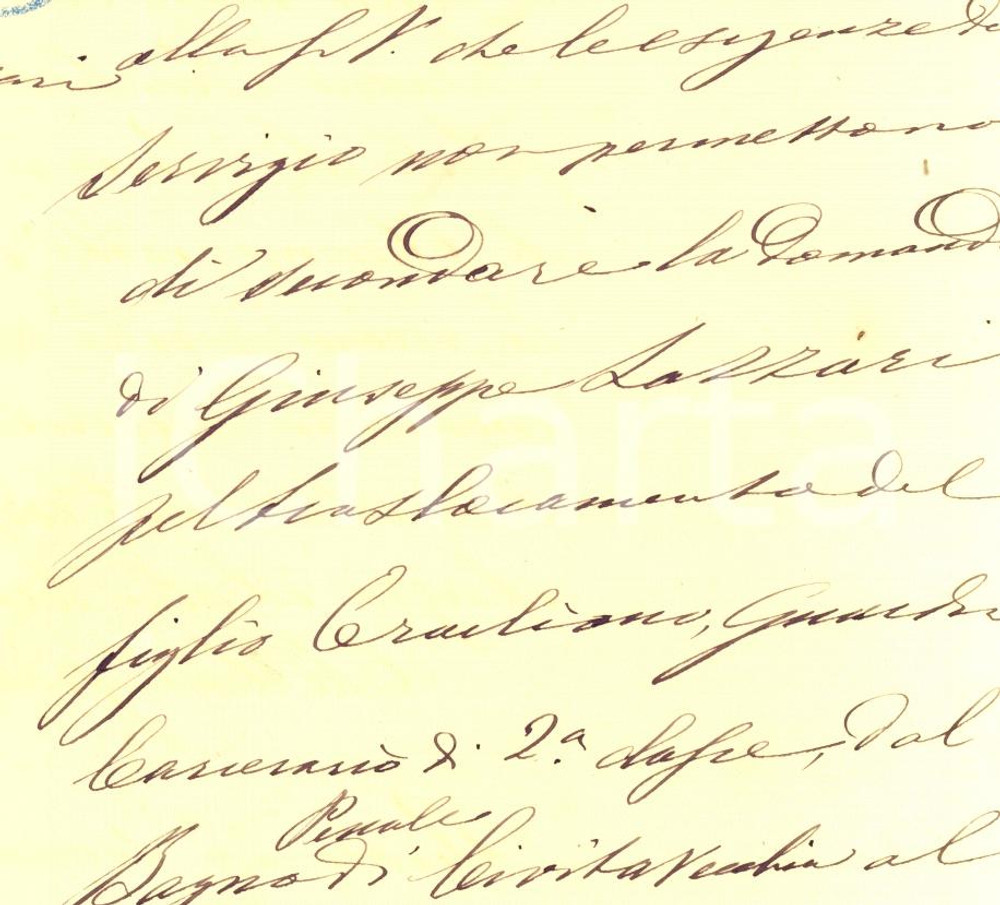 alla S. V. che le esigenze di
servizio non permettono
di secondare la domanda
di Giuseppe Lazzari
pel traslocamento del
figlio Ercoliano, Guardia
Carcerario di 2.ª classe, dal
Bagno Penale di Civitavecchia al
iCharta